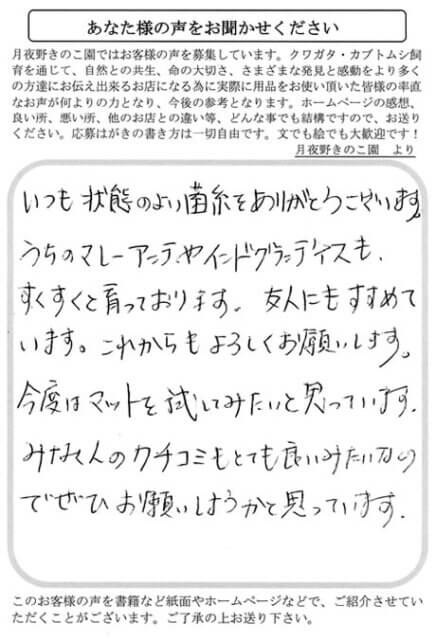 あなた様の声をお聞かせください
月夜野きのこ園ではお客様の声を募集しています。クワガタ・カブトムシ飼
育を通じて、自然との共生、命の大切さ、さまざまな発見と感動をより多く
の方達にお伝え出来るお店になる為に実際に用品をお使い頂いた皆様の率直
なお声が何よりの力となり、今後の参考となります。ホームページの感想、
良い所、悪い所、他のお店との違い等、どんな事でも結構ですので、お送り
ください。応募はがきの書き方は一切自由です。文でも絵でも大歓迎です！
月夜野きのこ園　より
いつも状態のよい菌糸をありがとうございます。
うちのマレーアンテやインドグランディスも、
すくすくと育っております。友人にもすすめて
います。これからもよろしくお願いします。
今度はマットを試してみたいと思っています。
みなさんのクチコミもとても良いみたいなの
でぜひお願いしようかと思っています。
このお客様の声を書籍など紙面やホームページなどで、ご紹介させてい
ただくことがございます。ご了承の上お送り下さい。